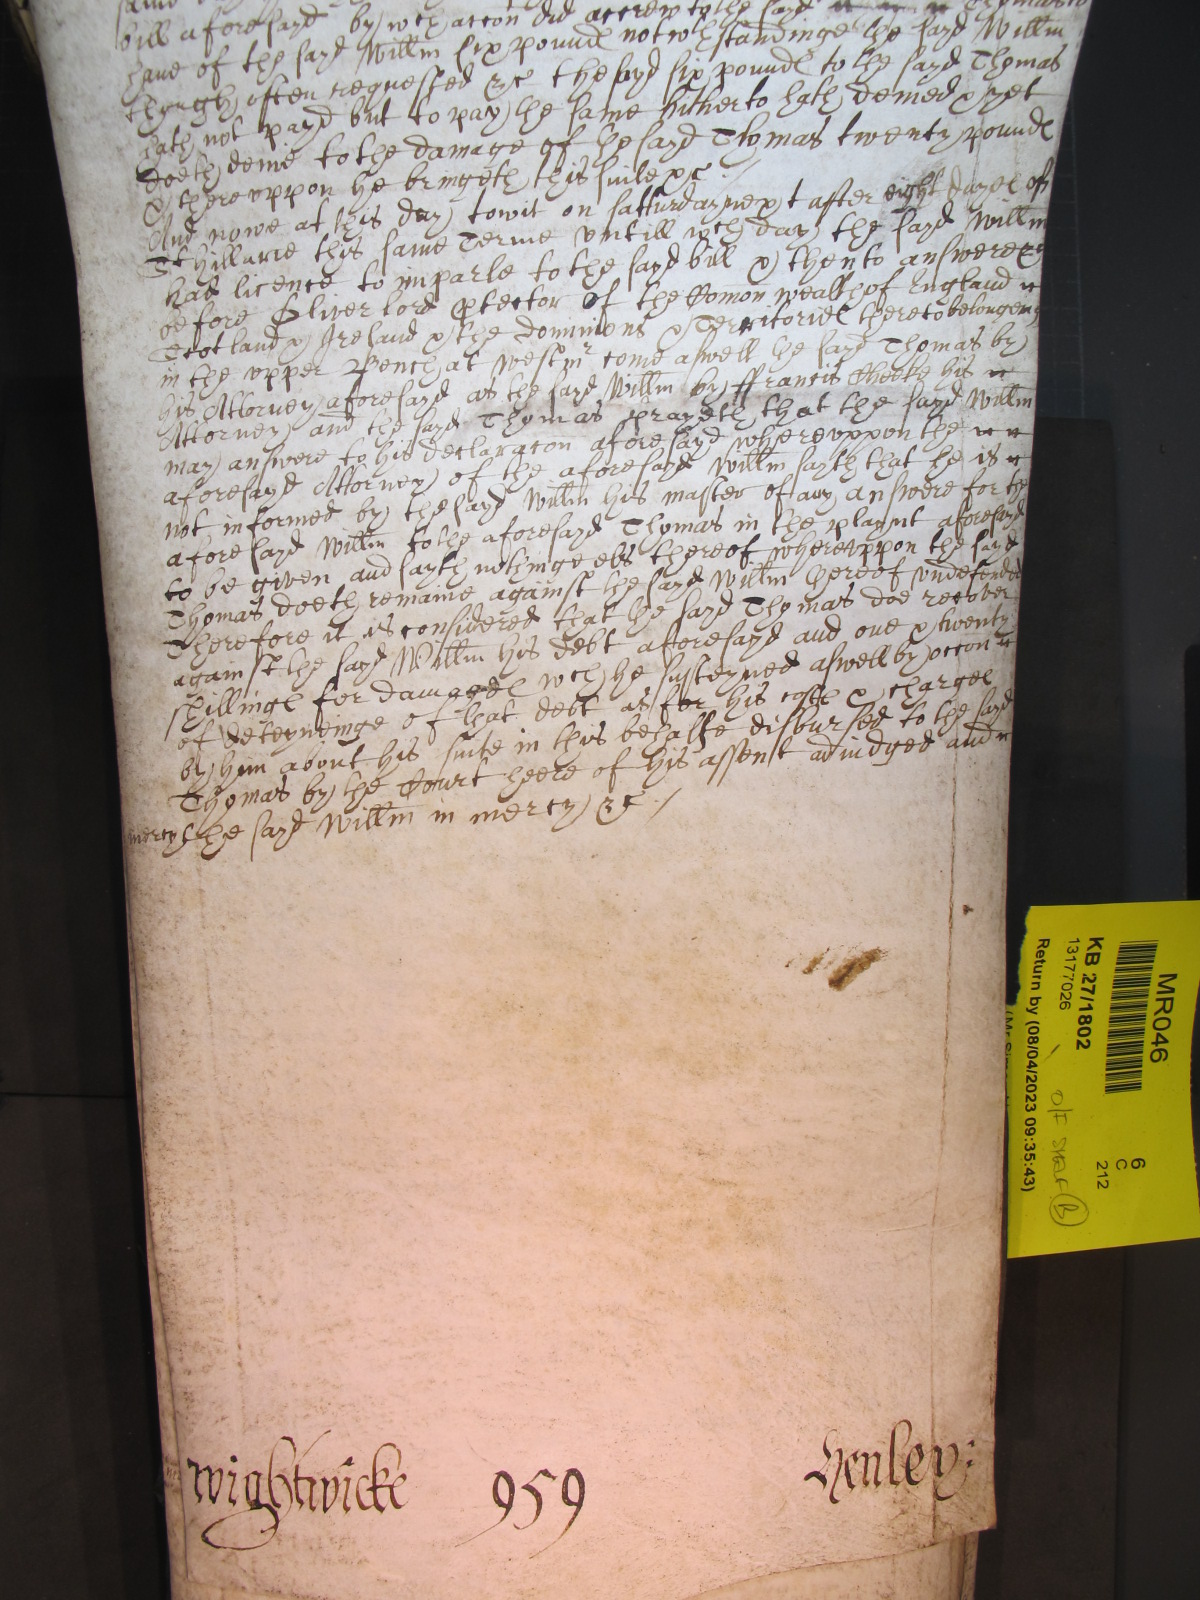 bill aforesayd by wch accon did accrew to the sayd Thomas to
have of the sayd Willm six pound notwthstandinge the sayd Willm
though often requested &c the sayd six pound to the sayd Thomas
hath not payd but to pay the same hitherto hath denied & yet
doeth denie to the damage of the sayd Thomas twenty pound
& thereuppon he bringeth this suite &c
And nowe at this day towit on Satturday next after eight dayes of
St Hillarie this same Terme untill wch day the sayd Willm
had licence to imparle to the sayd bill & then to answere &c
before Oliver lord Protector of the Comon wealth of England
Scotland & Ireland & the dominions & Territories thereto belongeng
in the upper Bench at Westmr come aswell the sayd Thomas by
his Attorney aforesayd as the sayd Willm by ffrancis Cheeke his
Attorney and the sayd Thomas prayeth that the sayd Willm
may answere to his declaracon aforesayd whereuppon the
aforesayd Attorney of the aforesayd Willm sayth that he is
not informed by the sayd Willm his master of any answere for the
aforesayd Willm to the aforesayd Thomas in the playnt aforesayd
to be given and sayth nothinge els thereof whereuppon the sayd
Thomas doeth remaine against the sayd Willm hereof undefended
Therefore it is considered that the sayd Thomas doe recover
against the sayd Willm his debt aforesayd and one & twenty
shillings for damages wch he susteyned aswell by occon
of deteyneinge of that debt as for his costs & charges
by him about his suite in this behalfe disbursed to the sayd
Thomas by the Court heere of his assent adiudged and
mercy the sayd Willm in mercy &c
Wightwicke 959 Henley:
MR046
KB 27/1802
13177026
Return by (08/04/2023 09:35:43)
6
C
212
O/S SHELF B